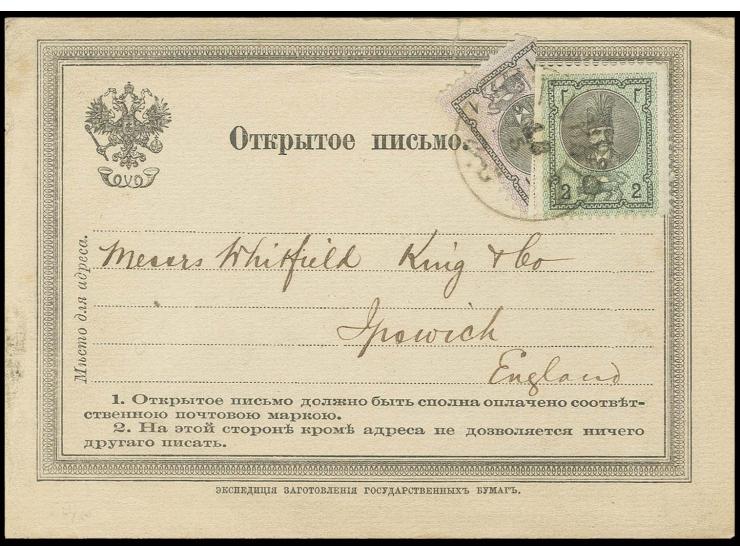 Открытое письмо.
Мѣсто для адреса.
Messrs Whitfield King & Co
Ipswich
England
1. Открытое письмо должно быть сполна оплачено соотвѣт-
ственною почтовою маркою.
2. На этой сторонѣ кромѣ адреса не дозволяется ничего
другаго писать.
ЭКСПЕДИЦІЯ ЗАГОТОВЛЕНІЯ ГОСУДАРСТВЕННЫХЪ БУМАГЪ.
1 1
۲ ۲
2 2